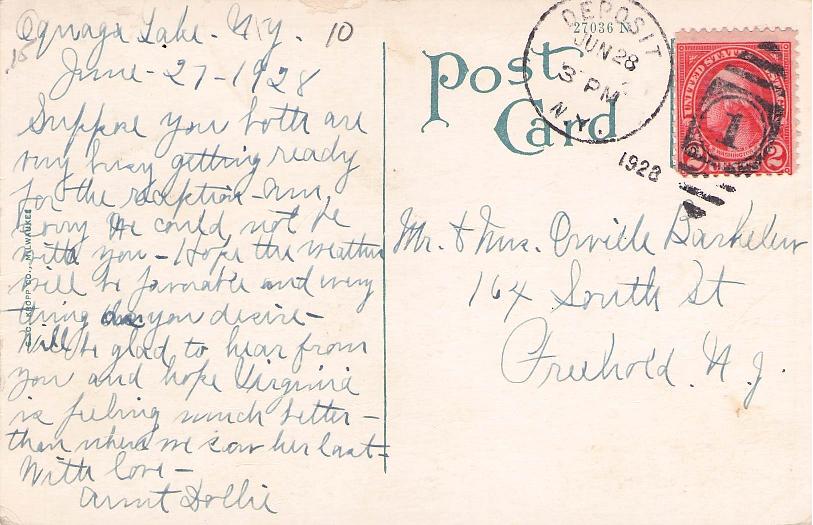 Oquaga Lake - N.Y. 10
15
June - 27 - 1928
Suppose you both are
very busy getting ready
for the reception - am
sorry we could not be
with you - Hope the weather
will be favorable and every
thing as you desire -
Will be glad to hear from
you and hope Virginia
is feeling much better -
than when we saw her last -
With love -
Aunt Dollie
E.C. KROPP CO., MILWAUKEE
27036 N
Post
Card
DEPOSIT
JUN 28
3 PM
N.Y.
1928
UNITED STATES POSTAGE
WASHINGTON
2 2
1
Mr. & Mrs. Orville Barkelew
164 South St
Freehold. N.J.